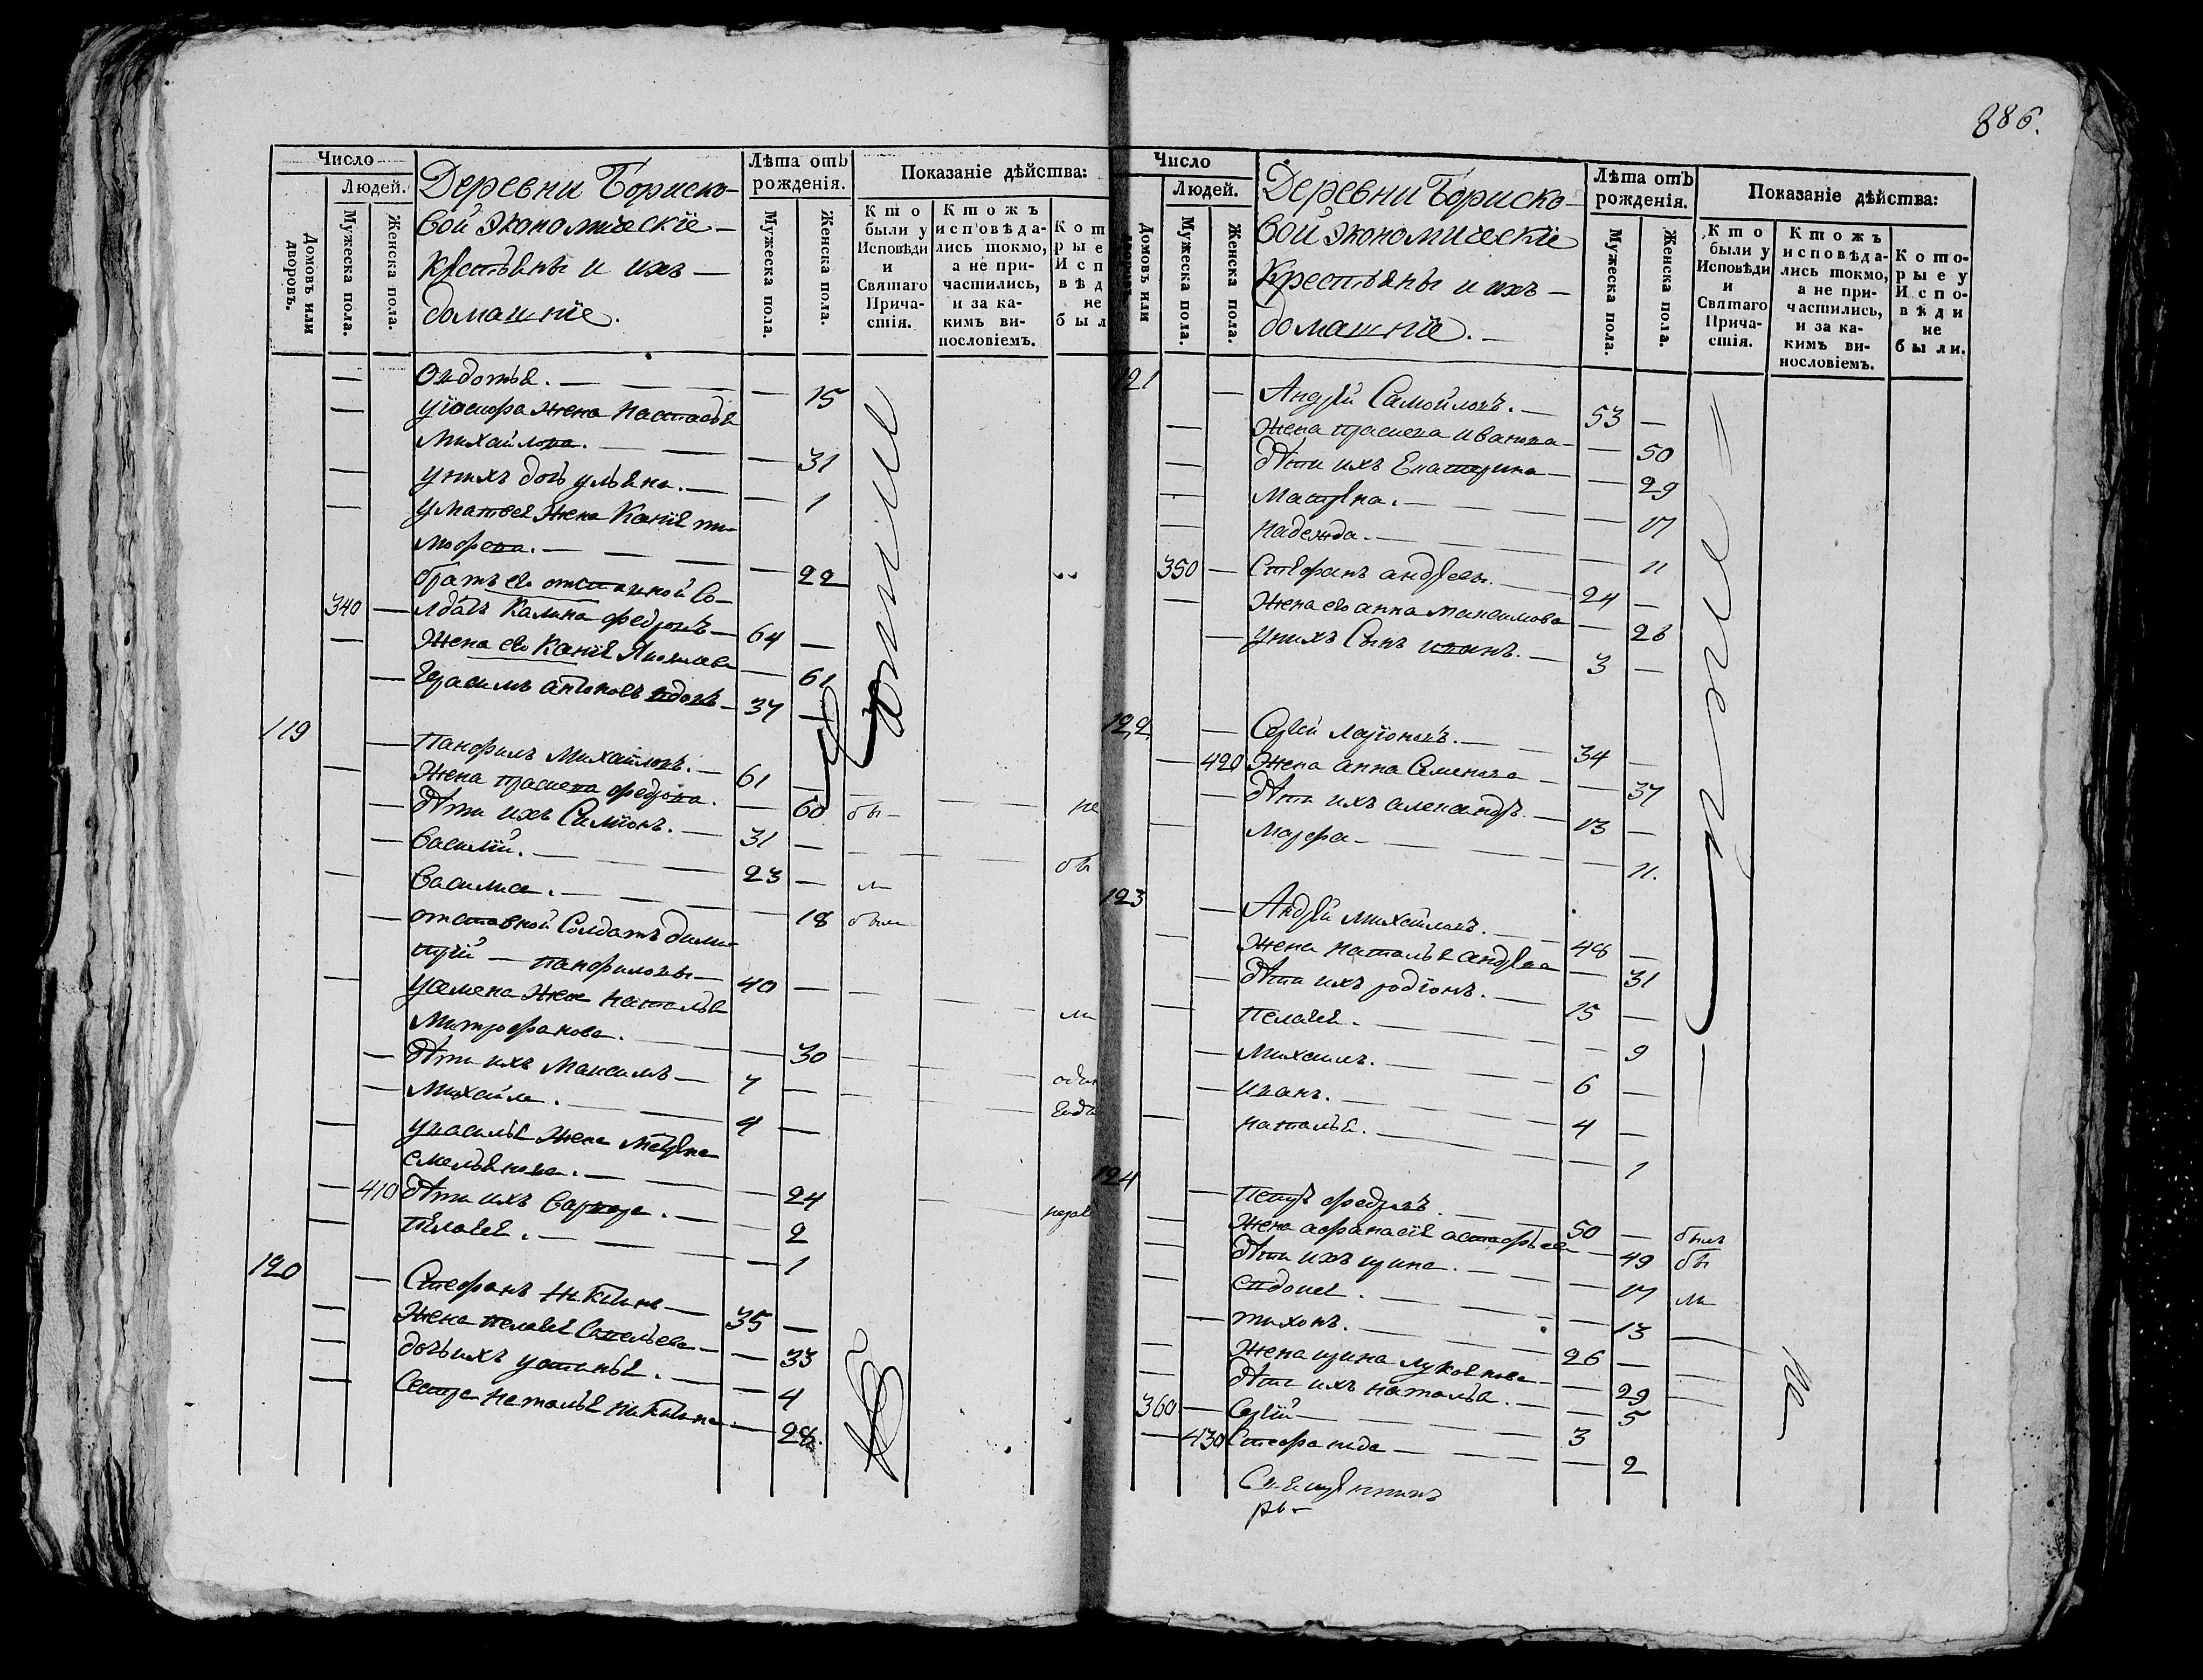 886.
Число
Людей.
Домовъ или дворовъ.
Мужеска пола.
Женска пола.
Деревни Бориско-
вой экономическіе
крестьяны и ихъ
домашніе.
Лѣта отъ рожденія.
Мужеска пола.
Женска пола.
Показаніе дѣйства:
Кто были у Исповѣди и Святаго Причастія.
Ктожъ исповѣдались токмо, а не причастились, и за какимъ винословіемъ.
Кот
рые
Исп
вѣд
не
был
— Овдотья. — — 15
— жена Настасья
Михайлова. — — 31
— у нихъ дочь Ульяна. — — 1
— у Матвея жена Ти-
мофева. — — 22
братъ ево отставной Со-
340 — лдатъ Калина Федоровъ — 64 —
— жена ево — 61
— Герасимъ Антоновъ вдовъ — 37 —
119 — Панфилъ Михайловъ. — 61 —
— жена Прасковя Федорова. — 60 бы — не
— дѣти ихъ Симіонъ. — 31 —
— Василій. — 23 — ли бы
— Василиса. — — 18 были
— отставной Солдатъ Дими-
трій — Панфиловы — 40 —
— жена Наталья
Митрофанова. — — 30 ли
— дѣти ихъ Максимъ — 7 —
— Михайла. — 4 —
— у Василья жена Матрена
Емельянова. — — 24
— 410 дѣти ихъ Варвара. — — 2
— Пелагея. — — 1
120 — Стефанъ Никитинъ — 35 —
— жена Пелагея Савельева — — 33
— дочь ихъ Устинья. — — 4
— Сестра Наталья Никитина — — 28.
Число
Людей.
Домовъ или дворовъ.
Мужеска пола.
Женска пола.
Деревни Бориско-
вой экономическіе
крестьяны и ихъ —
домашніе. —
Лѣта отъ рожденія.
Мужеска пола.
Женска пола.
Показаніе дѣйства:
Кто были у Исповѣди и Святаго Причастія.
Ктожъ исповѣдались токмо, а не причастились, и за какимъ винословіемъ.
Которые у Исповѣди не были.
121 — Андрей Самойловъ. — 53 —
— жена Прасковя Иванова — — 50
— дѣти ихъ Екатерина — — 29
— Матрена. — — 17
— Надежда. — — 11
350 — Стефанъ Андреевъ. — 24 —
— жена ево Анна Максимова — 26
— у нихъ сынъ Иванъ. — 3 —
122 — Сергей Ларіоновъ. — 34 —
— 420 жена Анна Семенова — — 37
— дѣти ихъ Александръ. — 13 —
— Марфа — — 11.
123 — Андрей Михайловъ. — 48 —
— жена Наталья Андреева — 31
— дѣти ихъ Родіонъ. — 15 —
— Пелагея. — — 9
— Михаилъ. — 6 —
— Иванъ. — 4 —
— Наталья. — — 1
124 — Петръ Федоровъ. — 50 — былъ
— жена Афанасія Астафьева — 49 бы
— дѣти ихъ Ирина. — — 17 ли
— Евдокея. — — 13
— Тихонъ. — 26 —
— жена Ирина Лукоянова — — 29
— дѣти ихъ Наталья. — — 5
360 — Сергій — 3
— 430 Стефанида — — 2
Священникъ